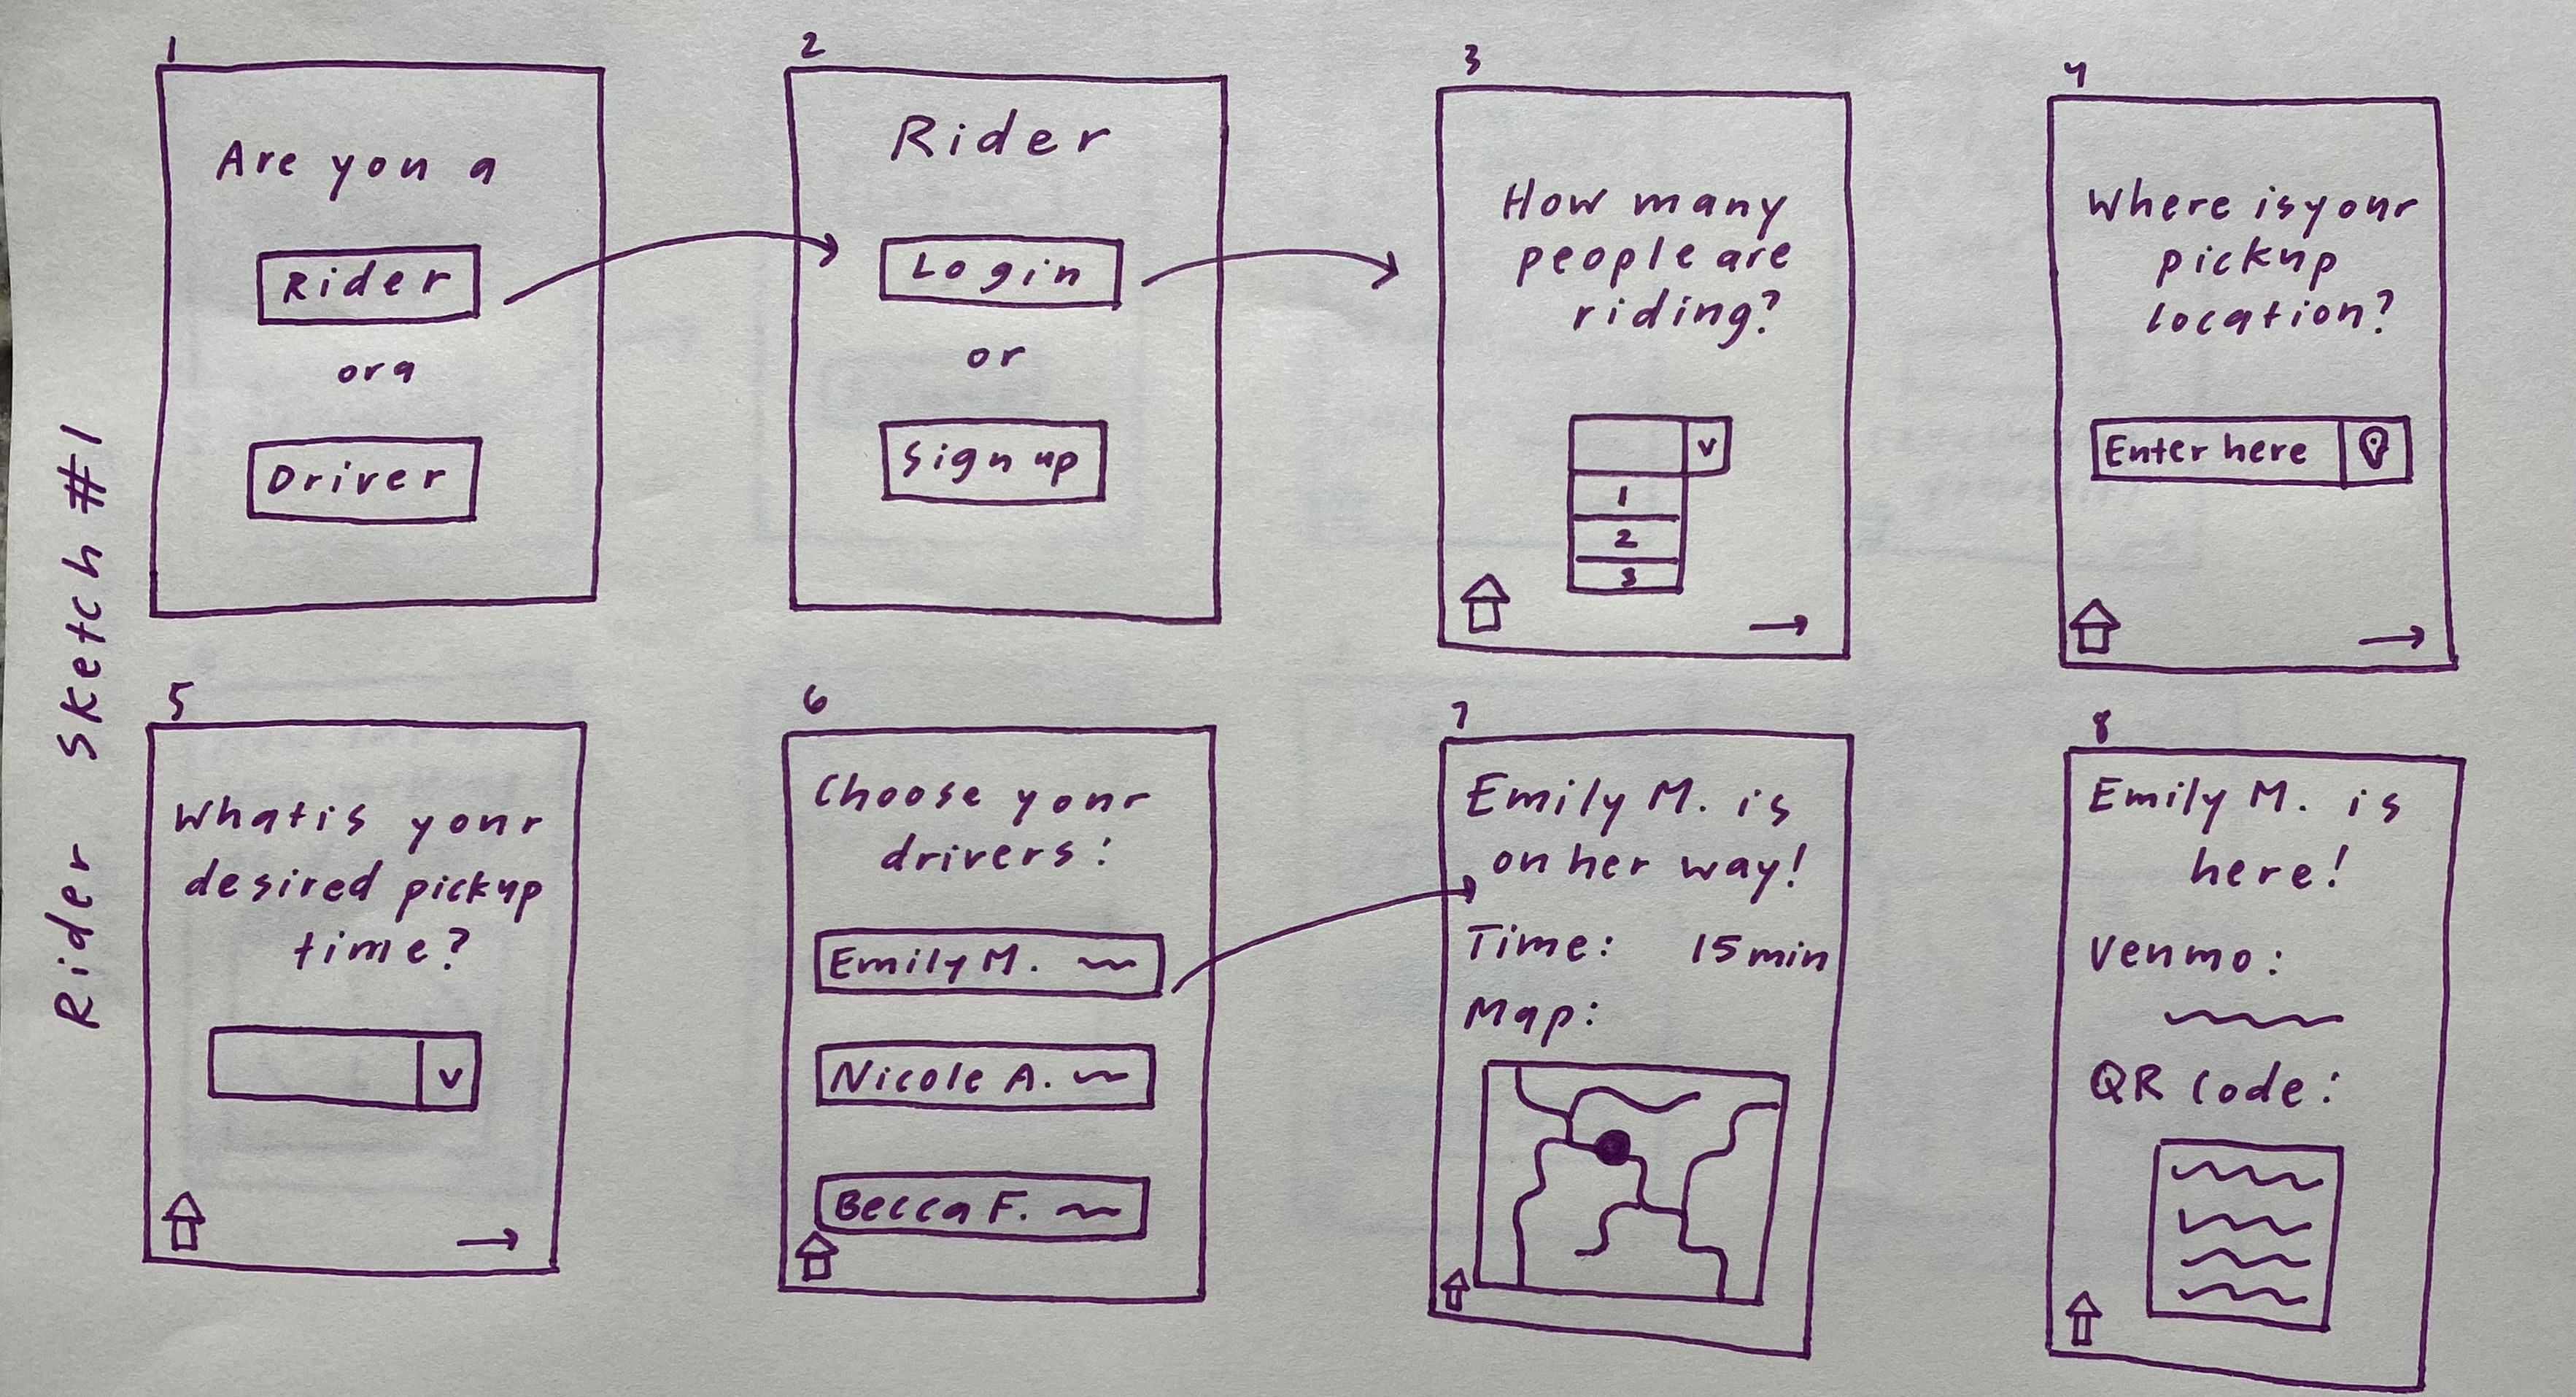 Rider Sketch #1
1
Are you a
Rider
or a
Driver
2
Rider
Login
or
Sign up
3
How many
people are
riding?
v
1
2
3
4
Where is your
pickup
location?
Enter here
5
What is your
desired pickup
time?
v
6
Choose your
drivers:
Emily M.
Nicole A.
Becca F.
7
Emily M. is
on her way!
Time: 15 min
Map:
8
Emily M. is
here!
Venmo:
QR Code: